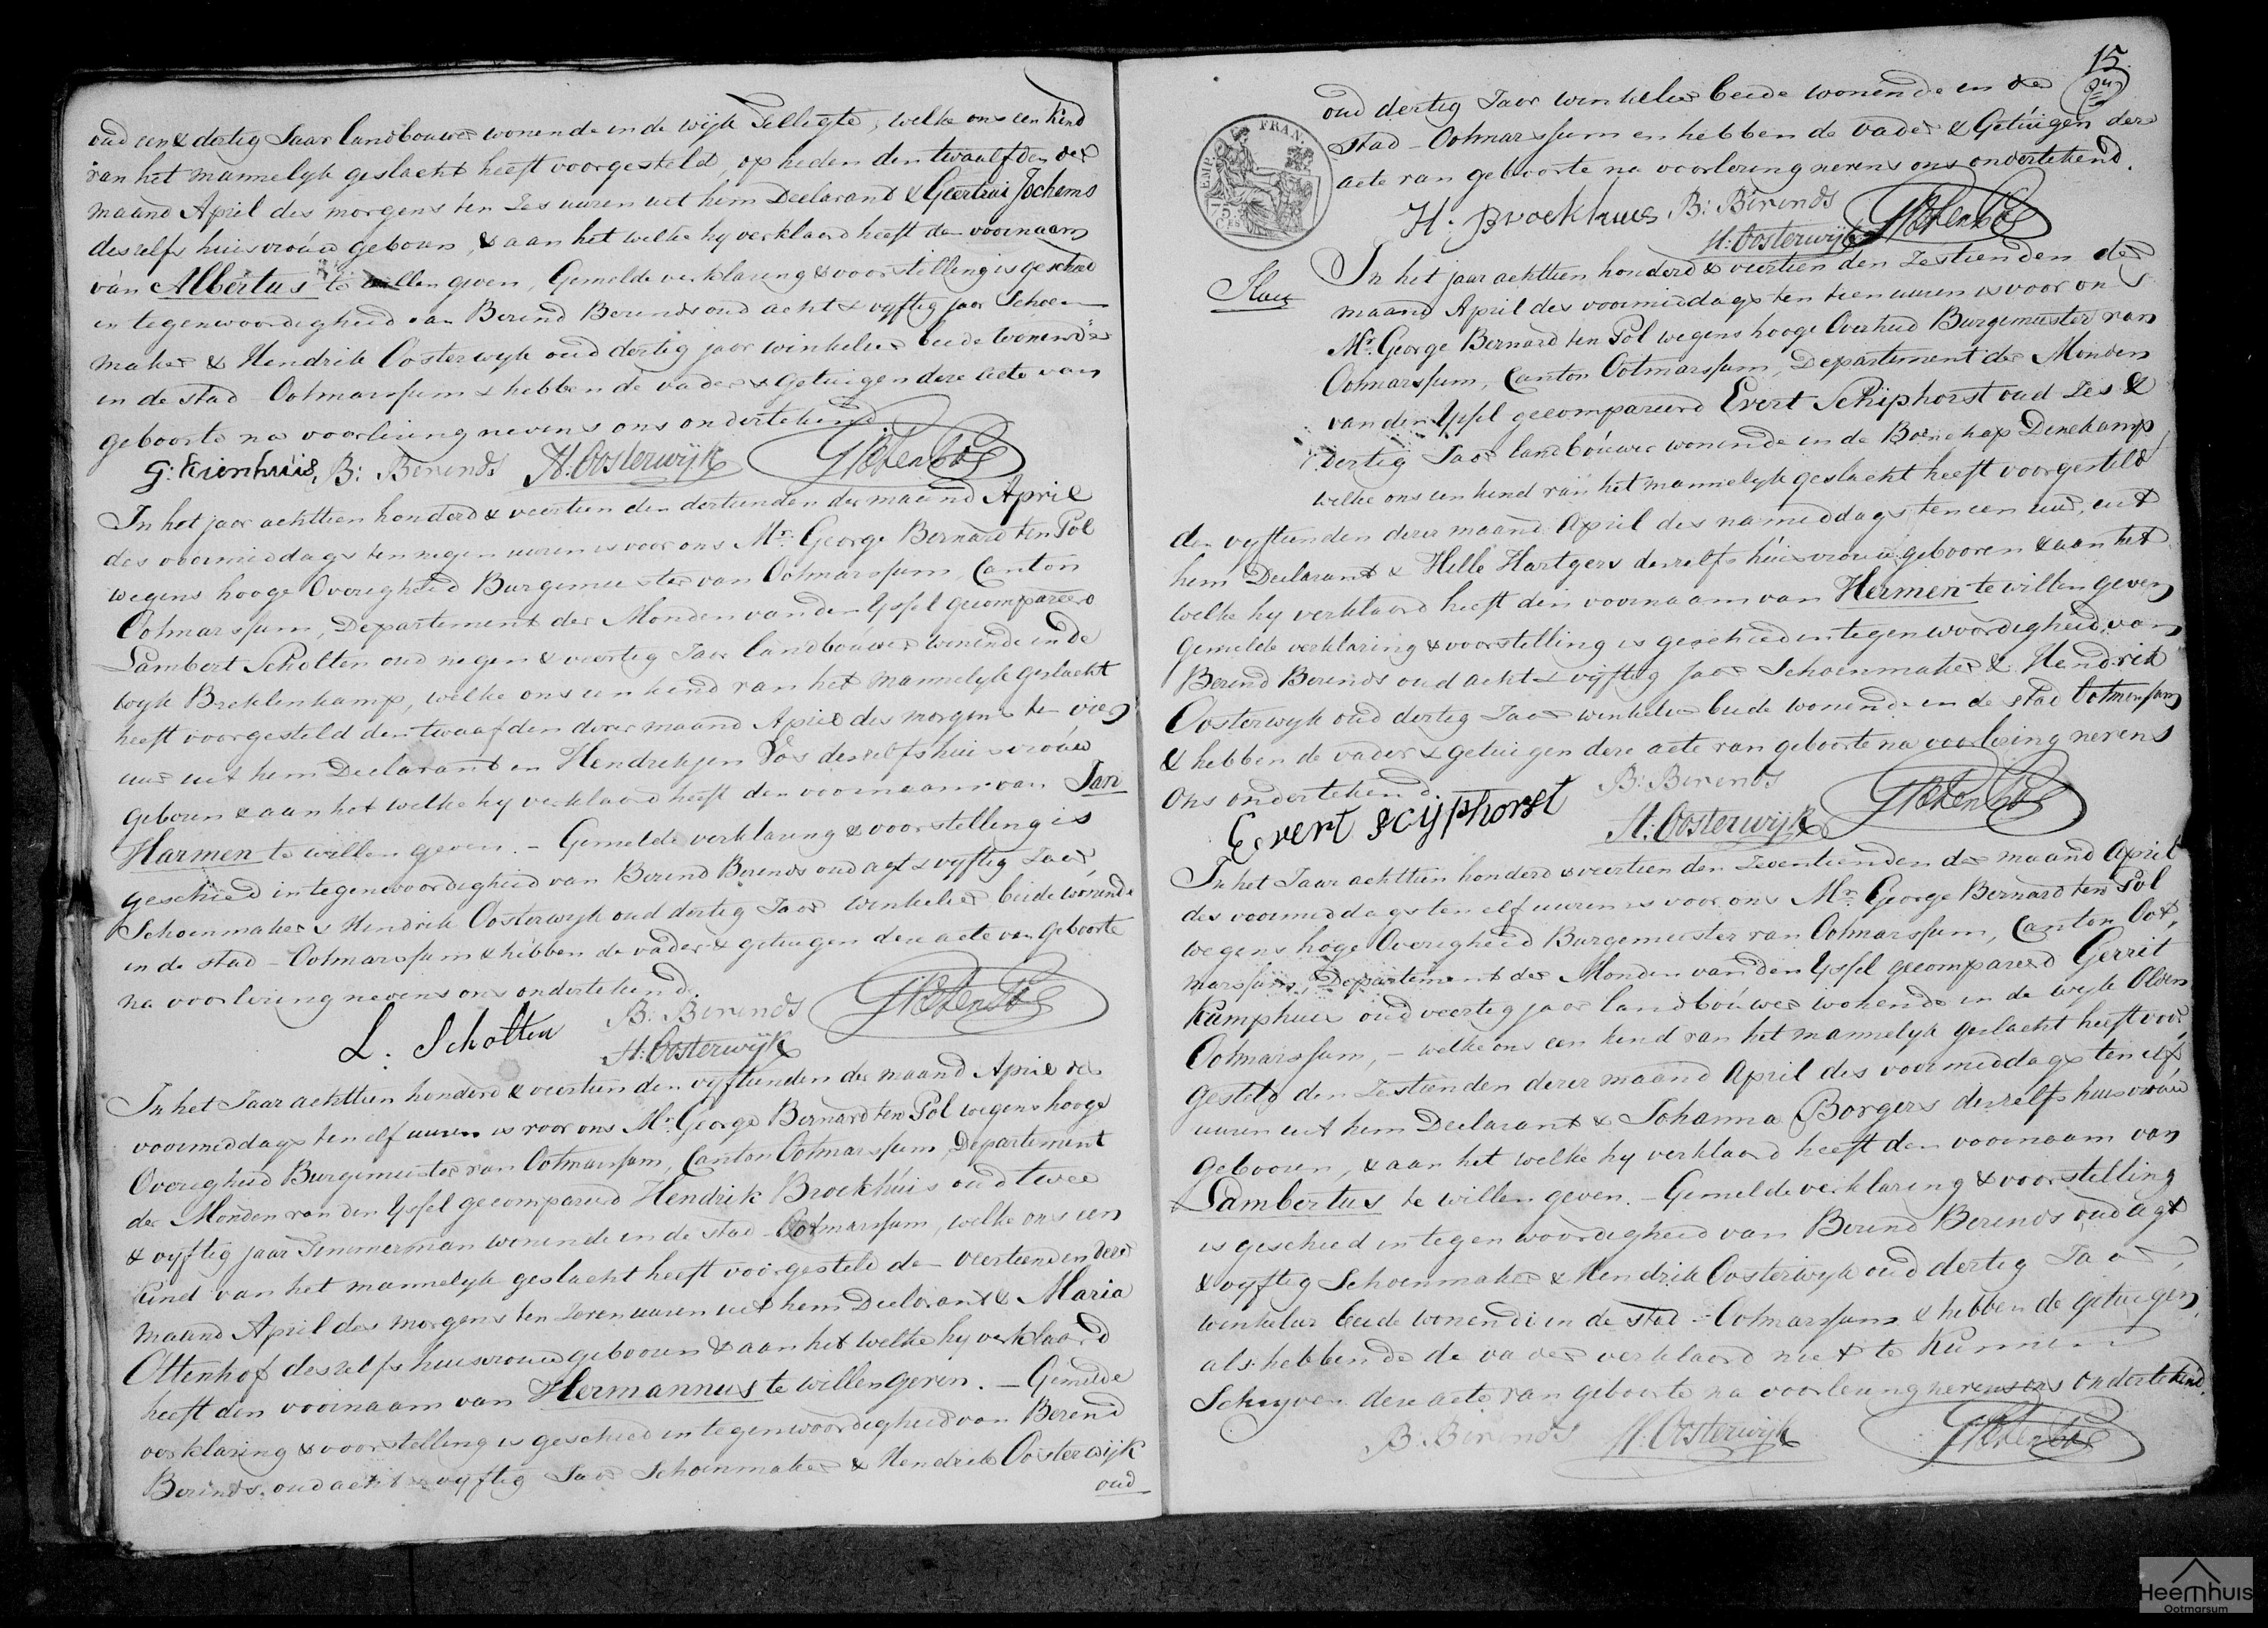 oud een & dertig Jaar landbouwer wonende in de wijk Tilligte, welke ons een kind
van het mannelyk geslacht heeft voorgesteld, op heden den twaalfden der
maand April des morgens ten Zes uuren uit hem Declarand & Geertrui Jochems
deszelfs huisvrouw geboren, & aan het welke hy verklaard heeft den voornaam
van Albertus te willen geven, Gemelde verklaring & voorstelling is geschied
in tegenwoordigheid van Berend Berends oud acht & vyftig jaar Schoen
maker & Hendrik Oosterwyk oud dertig jaar winkelier beide wonende
in de stad Ootmarssum & hebben de vader & getuigen deze acte van
geboorte na voorlezing nevens ons ondertekend
G: Kienhuis, B: Berends H: Oosterwijk GBtenPol
In het jaar achttien honderd & veertien den dertienden der maand April
des voormiddags ten negen uuren is voor ons Mr. George Bernard ten Pol
wegens hooge Overigheid Burgemeester van Ootmarssum, Canton
Ootmarssum, Departement der Monden van den Yssel gecompareerd
Lambert Scholten oud negen & veertig Jaar landbouwer wonende in de
wyk Breklenkamp, welke ons een kind van het mannelyk geslacht
heeft voorgesteld den twaafden dezer maand April des morgens te vier
uur uit hem Declarant en Hendrekjen Vos deszelfs huisvrouw
geboren & aan het welke hy verklaard heeft den voornaam van Jan
Harmen te willen geven. - Gemelde verklaring & voorstelling is
geschied in tegenwoordigheid van Berend Berends oud agt & vyftig Jaar
Schoenmaker & Hendrik Oosterwyk oud dertig Jaar winkelier beide wonende
in de stad - Ootmarssum & hebben de vader & getuigen deze acte van Geboorte
na voorlezing nevens ons ondertekend.
L. Scholten B: Berends GBtenPol
H: Oosterwijk
In het Jaar achttien honderd & veertien den vyftienden der maand April des
voormiddags ten elf uuren is voor ons Mr. George Bernard ten Pol wegens hooge
Overigheid Burgemeester van Ootmarssum, Canton Ootmarssum, Departement
der Monden van den Yssel gecompareerd Hendrik Brockhuis oud twee
& vyftig jaar Timmerman wonende in de stad Ootmarssum, welke ons een
kind van het mannelyk geslacht heeft voorgesteld den veertienden dezer
maand April des morgens ten zeven uuren uit hem Declarant & Maria
Ottenhof deszelfs huisvrouw gebooren & aan het welke hy verklaard
heeft den voornaam van Hermannus te willen geven. - Gemelde
verklaring & voorstelling is geschied in tegenwoordigheid van Berend
Berends oud acht & vyftig Jaar Schoenmaker & Hendrik Oosterwijk
oud
15.
oud dertig Jaar winkelier beide wonende in de
stad - Ootmarssum en hebben de vader & Getuigen deze
acte van geboorte na voorlezing nevens ons ondertekend.
EMP. FRAN.
75
H. Brockhues B: Berends GBtenPol
H: Oosterwijk
In het jaar achttien honderd & veertien den Zestienden der
maand April des voormiddags ten tien uuren is voor ons
Mr. George Bernard ten Pol wegens hooge Overheid Burgemeester van
Ootmarssum, Canton Ootmarssum, Departement der Monden
van den Yssel gecompareerd Evert Schiphorst oud Zes &
dertig Jaar landbouwer wonende in de Boerschap Denekamp
welke ons een kind van het mannelyk geslacht heeft voorgesteld
den vyftienden dezer maand April des namiddags ten een uur, uit
hem Declarant & Hille Hartgers deszelfs huisvrouw gebooren & aan het
welke hy verklaard heeft den voornaam van Hermen te willen geven
Gemelde verklaring & voorstelling is geschied in tegenwoordigheid van
Berend Berends oud acht & vyftig Jaar Schoenmaker & Hendrik
Oosterwyk oud dertig Jaar winkelier beide wonende in de stad Ootmarssum
& hebben de vader & getuigen deze acte van geboorte na voorlezing nevens
ons ondertekend.
Evert scijphorst B: Berends GBtenPol
H: Oosterwijk
In het Jaar achttien honderd & veertien den Zeventienden der maand April
des voormiddags ten elf uuren is voor ons Mr. George Bernard ten Pol
wegens hoge Overigheid Burgemeester van Ootmarssum, Canton Oot,,
marssum, Departement der Monden van den Yssel gecompareerd Gerrit
Kamphuis oud veertig jaar landbouwer wonende in de wyk Olden
Ootmarssum, - welke ons een kind van het mannelyk geslacht heeft voor
gesteld den Zestienden dezer maand April des voormiddags ten elf
uuren uit hem Declarant & Johanna Borgers deszelfs huisvrouw
gebooren, & aan het welke hy verklaard heeft den voornaam van
Lambertus te willen geven. - Gemelde verklaring & voorstelling
is geschied in tegenwoordigheid van Berend Berends oud agt
& vyftig Schoenmaker & Hendrik Oosterwyk oud dertig Jaar,
winkelier beide wonende in de stad - Ootmarssum & hebben de getuigen,
als hebbende de vader verklaard niet te kunnen
Schryven deze acte van geboorte na voorlezing nevens ons ondertekend.
B: Berends H: Oosterwijk GBtenPol
Heemhuis
Ootmarsum